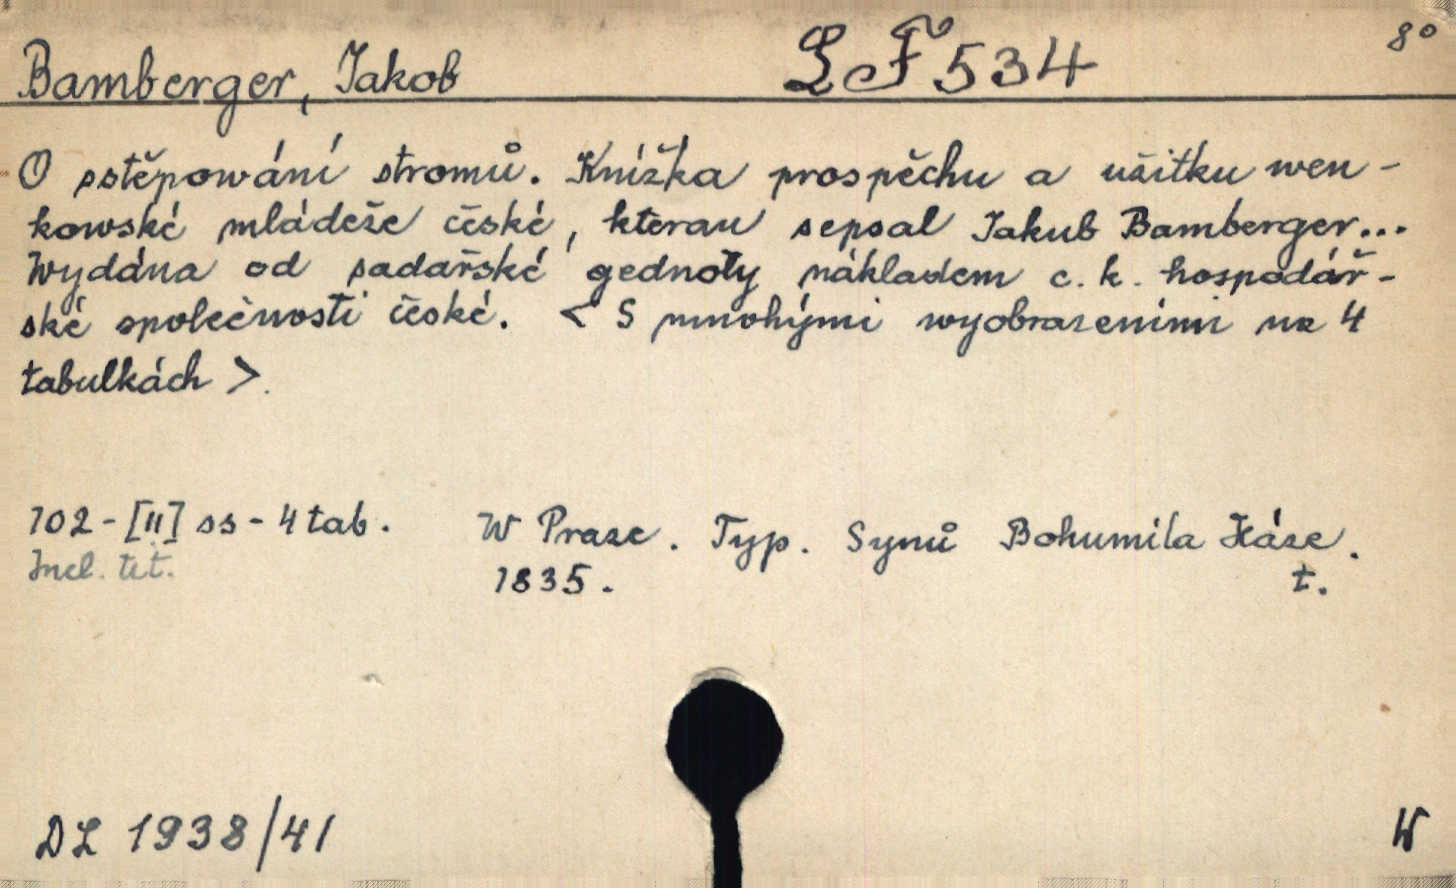 Bamberger, Jakob LF 534 8°
O sstěpowání stromů. Knížka prospěchu a užitku wen-
kowské mládeže české, kterau sepsal Jakub Bamberger...
Wydána od sadařské gednoty nákladem c. k. hospodář-
ské společnosti české. < S mnohými wyobrazeními na 4
tabulkách >.
102 - [II] ss - 4 tab. W Praze. Typ. Synů Bohumila Háze.
Incl. tit. 1835. t.
DL 1938/41 W